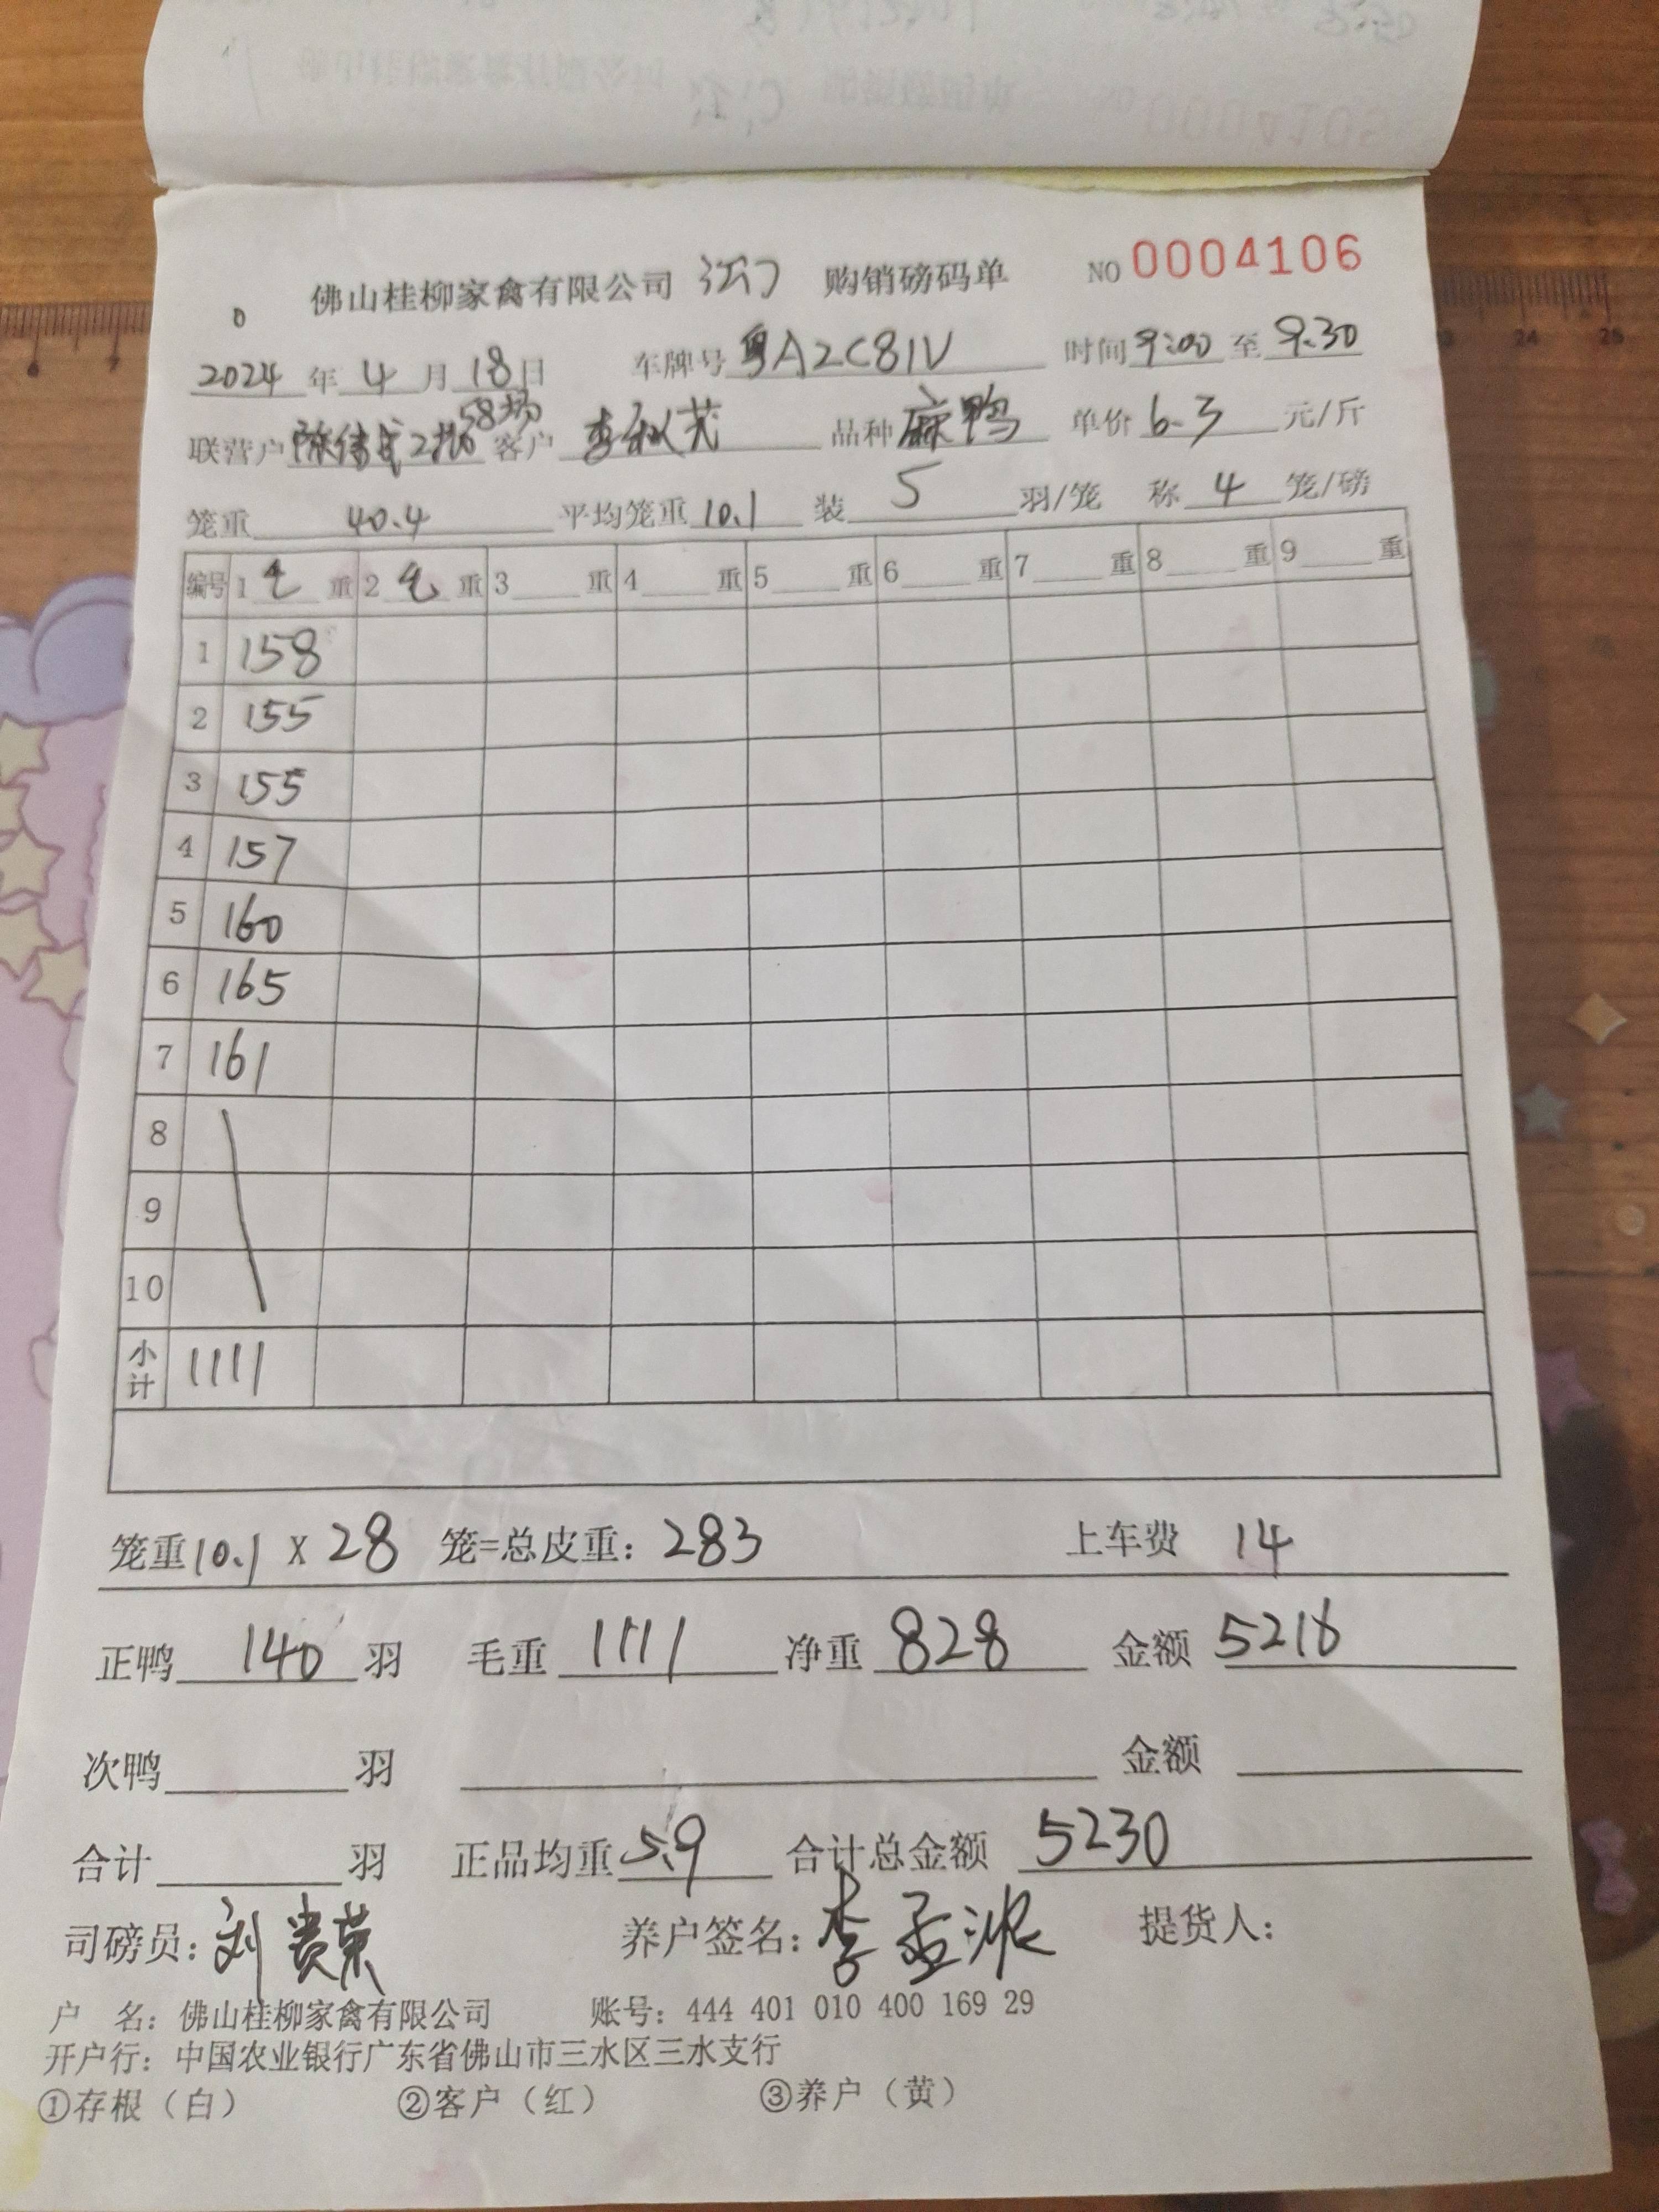 佛山桂柳家禽有限公司 江门 购销磅码单 NO 0004106
2024 年 4 月 18 日 车牌号 粤A2C81V 时间 9:00 至 9.30
58场
联营户 陈伟 2批 客户 李秋芳 品种 麻鸭 单价 6.3 元/斤
笼重 40.4 平均笼重 10.1 装 5 羽/笼 称 4 笼/磅
编号 1 毛 重 2 毛 重 3 重 4 重 5 重 6 重 7 重 8 重 9 重
1 158
2 155
3 155
4 157
5 160
6 165
7 161
8
9
10
小计 1111
笼重 10.1 X 28 笼=总皮重: 283 上车费 14
正鸭 140 羽 毛重 1111 净重 828 金额 5216
次鸭 羽 金额
合计 羽 正品均重 5.9 合计总金额 5230
司磅员: 刘贵荣 养户签名: 李 提货人:
户 名: 佛山桂柳家禽有限公司 账号: 444 401 010 400 169 29
开户行: 中国农业银行广东省佛山市三水区三水支行
①存根（白） ②客户（红） ③养户（黄）